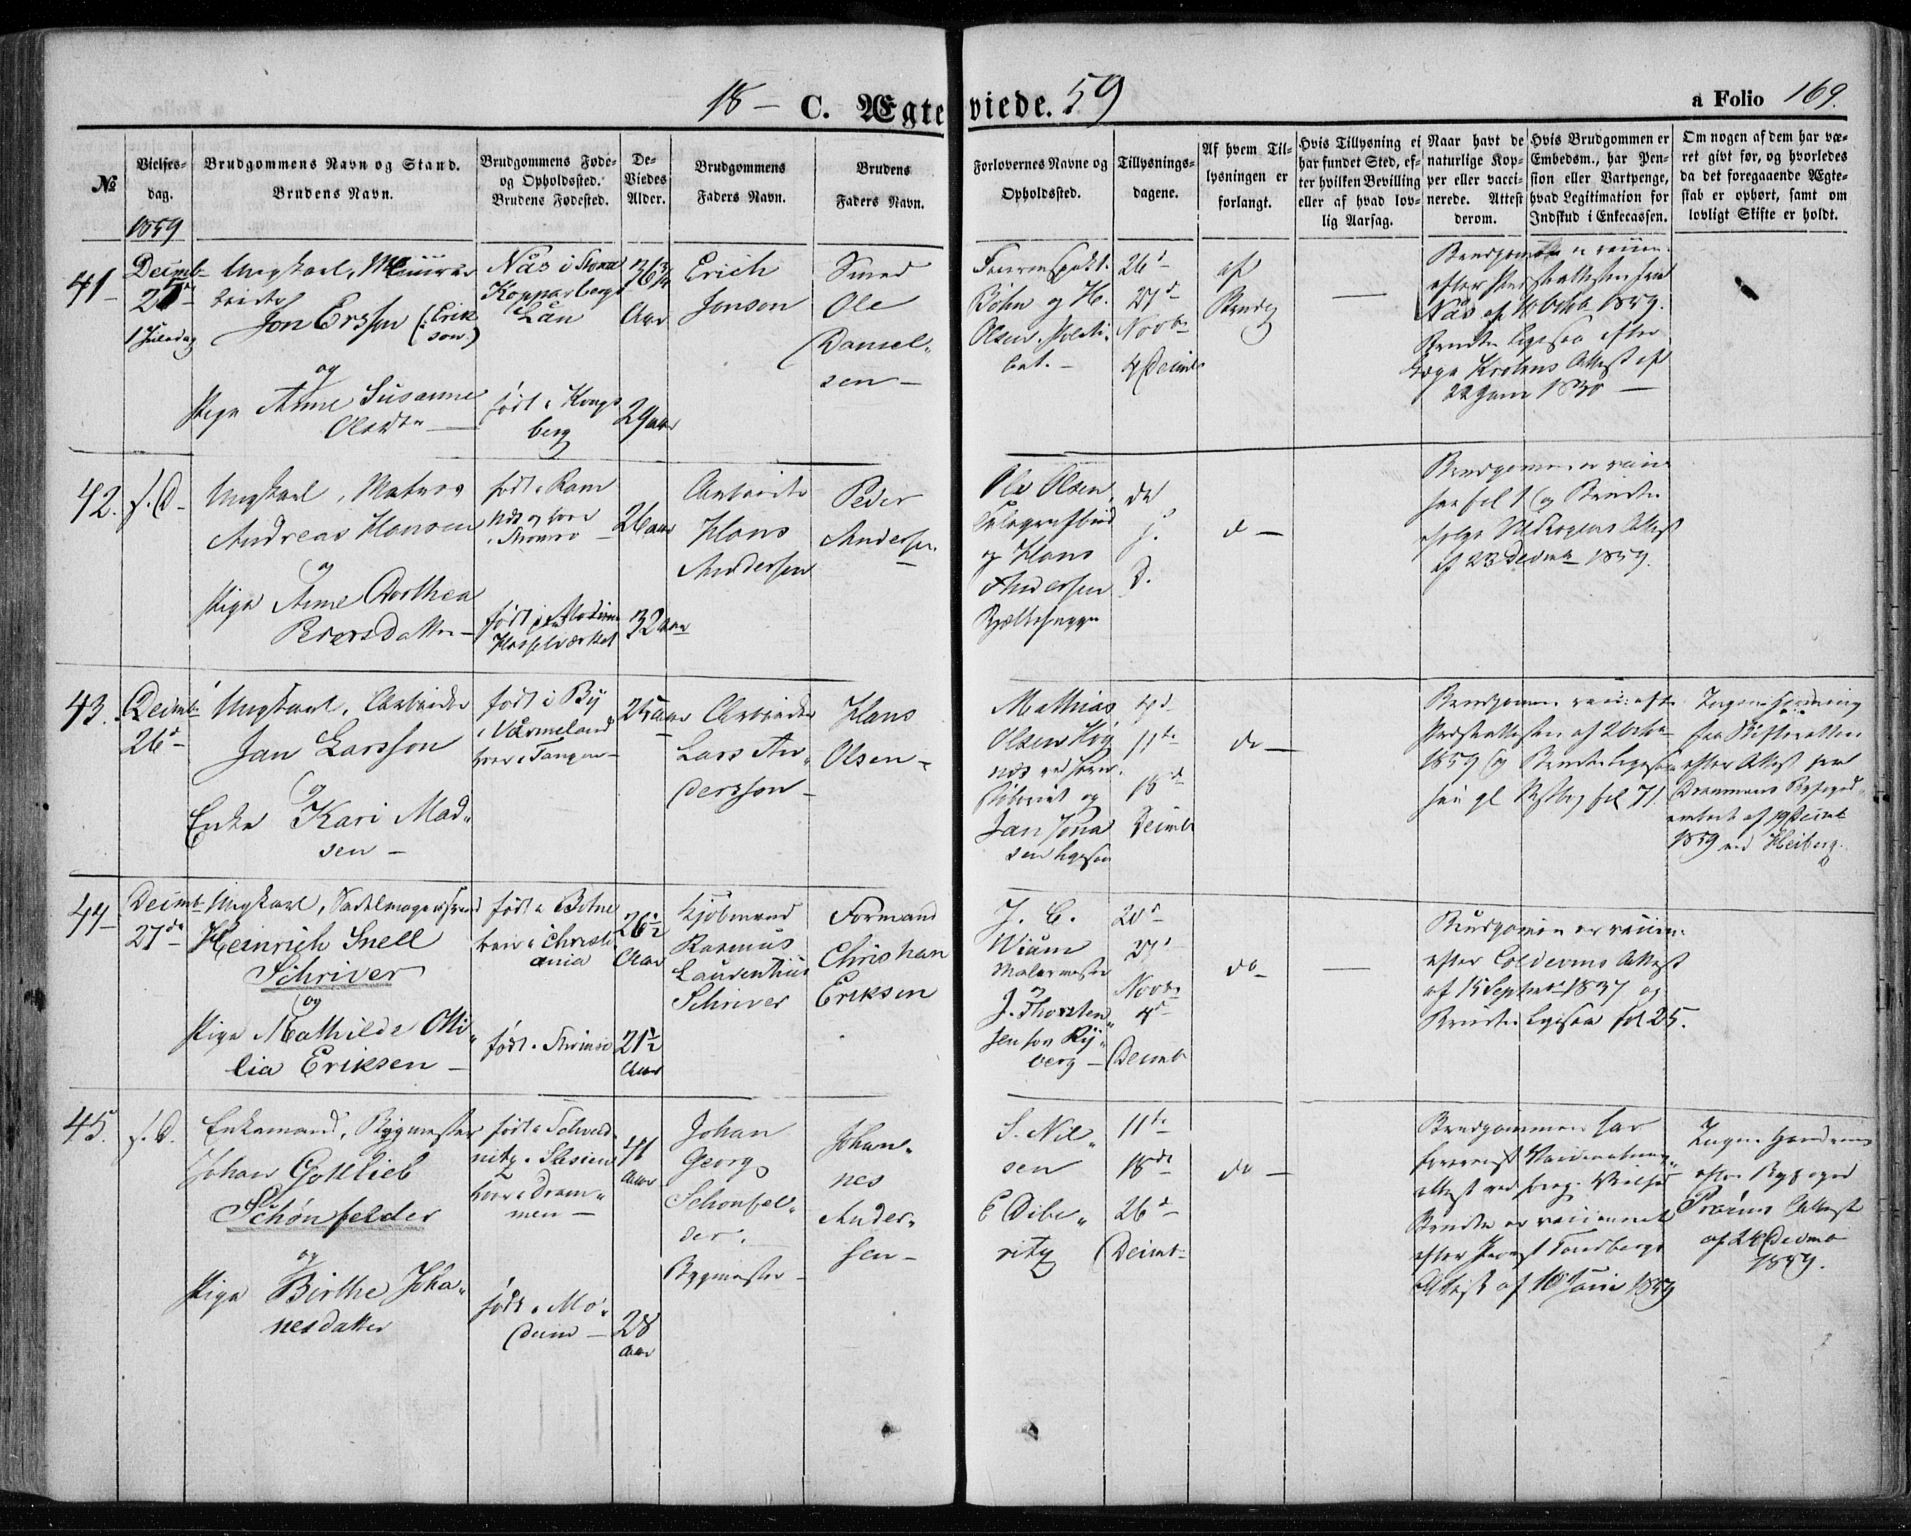 18— C. Ægteviede. 59
a Folio 169.
№
Vielses-
dag.
Brudgommens Navn og Stand.
Brudens Navn.
Brudgommens Føde-
og Opholdssted.
Brudens Fødested.
De-
Viedes
Alder.
Brudgommens
Faders Navn.
Brudens
Faders Navn.
Forlovernes Navne og
Opholdssted.
Tillysnings-
dagene.
Af hvem Til-
lysningen er
forlangt.
Hvis Tillysning ei
har fundet Sted, ef-
ter hvilken Bevilling
eller af hvad lov-
lig Aarsag.
Naar havt de
naturlige Kop-
per eller vacci-
nerede. Attest
derom.
Hvis Brudgommen er
Embedsm., har Pen-
sion eller Vartpenge,
hvad Legitimation for
Indskud i Enkecassen.
Om nogen af dem har væ-
ret givt før, og hvorledes
da det foregaaende Ægte-
skab er ophørt, samt om
lovligt Skifte er holdt.
1859
41—
Decmb
1 Juledag
Ungkarl,
Jon Ersson (Erik
son.)
og
Pige Anne Susanne
Olsdtr —
Nås i Stora
Kopparbergs
Län
født i Kongs
berg
36¾
Aar
29 aar
Erich
Jonson
Smed
Ole
Daniel„
sen —
Böhn og H.
Olsen
26d
27d
Novbr
4 Decmb
af
Brudg
—
Brudgommen er vacc.
efter Præsteattesten fra
Nås af 10 Octb 1859.
Bruden ligesaa efter
Krohns Attest af
22 Juni 1830 —
42.
s. D.
Ungkarl, Matros
Andreas Hansen
og
Pige Anne Dorthea
Pedersdatter —
født i Ram
næs og boer
i Strømsø
født paa Modum
Hasselværket
26 aar
32 aar
Arbeider
Hans
Andersen
Peder
Andersen
—
Ole Olsen
Telegrafbud
og Hans
Andersen
do
s.
D.
do —
Brudgommen er vacc
see fol 1 og Bruden
ifølge Attest
af 23 Decmb 1859.
43.
Decmb
26d
Ungkarl, Arbeider
Jan Larsson
og
Enke Kari Mad„
sen —
født i By
i Värmeland
boer i Tangen —
25 aar
Arbeider
Lars An„
dersson —
Hans
Olsen —
Mathias
Olsen
og
Jan Jona
sen ligesaa
4d
11te
18d
Decmb
do —
Brudgommen vacc: efter
Præsteattesten af 2 Octb
1859 og Bruden ligesaa
see gl fol 71.
Ingen Hindring
fra Skifteretten
efter Attest fra
Drammens Byfoged
embede af 19 Decmb
1859 ved Heiberg.
44—
Decmb
27de
Ungkarl, Sadelmagersvend
Heinrich Snell
Schriver
og
Pige Mathilde Otti„
lia Eriksen —
født i Botne
boer i Christi
ania
født i Strømsø
26½
Aar
21½
Aar
Kjøbmand
Rasmus
Laurentius
Schriver
Formand
Christian
Eriksen
J. C.
Wium
Malermester
og
J. Thorsten
sen for Ry„
berg —
20d
27d
Novbr
4d
Decmb
do
—
Brudgommen er vaccin.
efter Coldevins Attest
af 15 Septbr 1837 og
Bruden ligesaa fol 25.
45.
s. D.
Enkemand, Bygmester
Johan Gottlieb
Schönfelder
og
Pige Birthe Joha„
nesdatter
født i Schweid
nitz i Slesien
boer i Dram„
men —
født i Mo„
dum —
41
aar
28
aar
Johan
Georg
Schönfel„
der.
Bygmester —
Johan„
nes
Ander„
sen —
S. Nil„
sen
E Dibe„
ritz
11te
18de
26d
Decmb
do —
Brudgommen har
forevist Vaccinations„
attest
Bruden er vaccineret
efter Provst Tandbergs
Attest af 10 Juni 1859
Ingen Hindring
efter Byfoged
Prøms Attest
af 24 Decmb
1859.